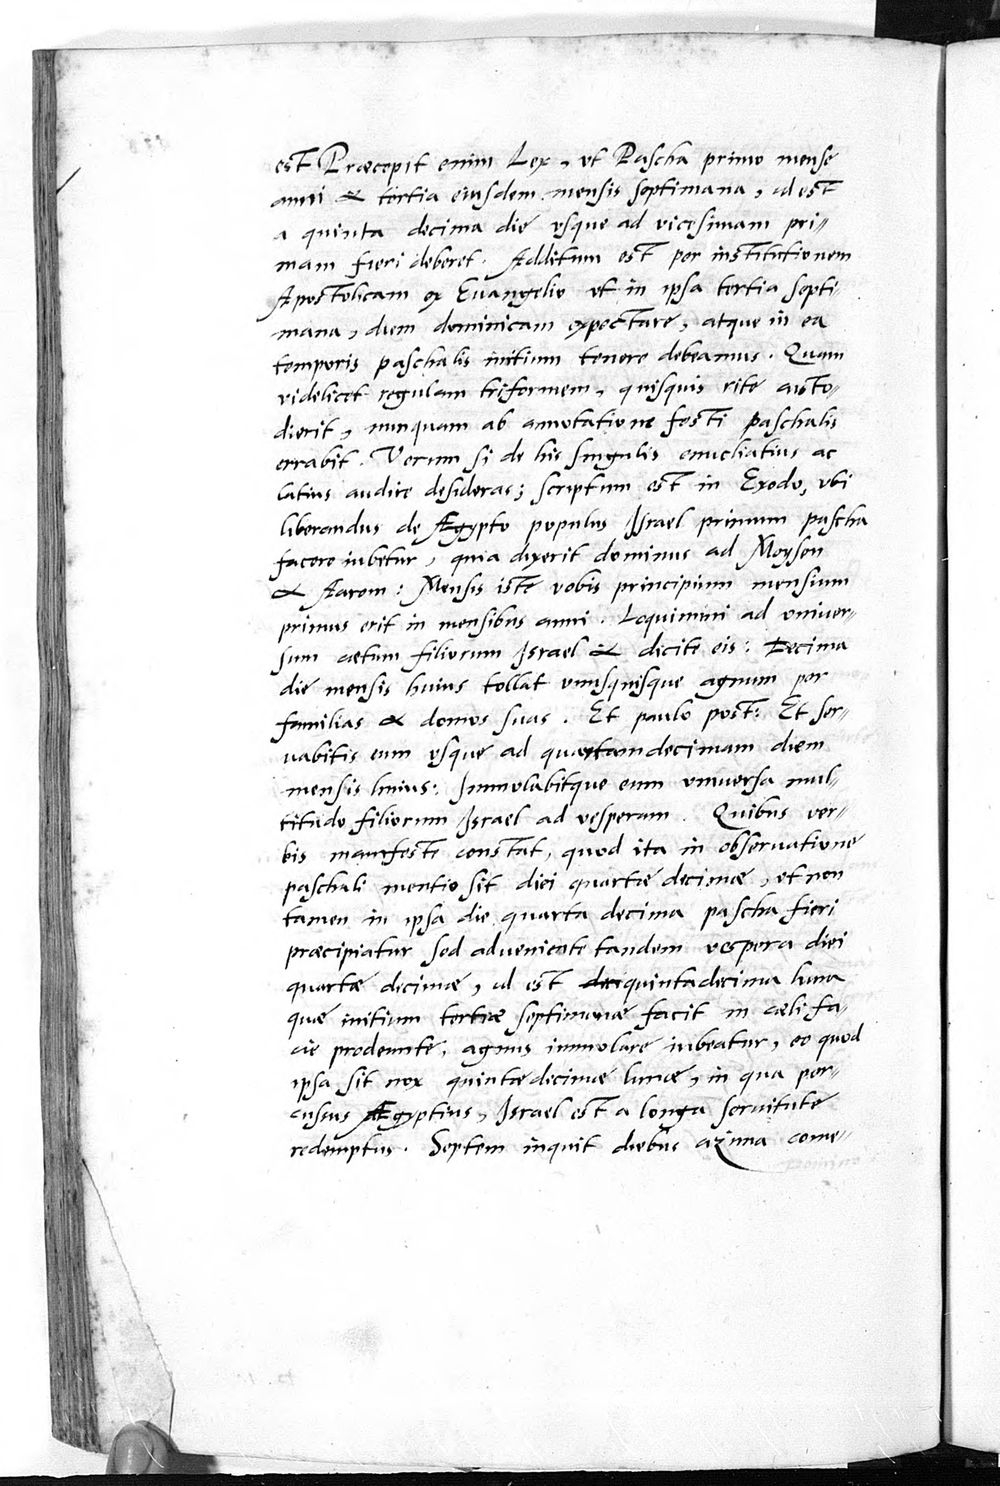 est Præcepit enim Lex, vt Pascha primo mense
anni & tertia eiusdem mensis septimana, id est
a quinta decima die vsque ad vicesimam pri-
mam fieri deberet. Additum est per institutionem
Apostolicam ex Euangelio vt in ipsa tertia septi-
mana, diem dominicam expectare, atque in ea
temporis paschalis initium tenere debeamus. Quam
videlicet regulam triformem, quisquis rite custo-
dierit, nunquam ab annotatione festi paschalis
errabit. Verum si de his singulis enucliatius ac
latius audire desideras; scriptum est in Exodo, vbi
liberandus de Ægypto populus Israel primum pascha
facere iubetur, quia dixerit dominus ad Moysen
& Aaron: Mensis iste vobis principium mensium
primus erit in mensibus anni. Loquimini ad vniuer-
sum cætum filiorum Israel & dicite eis: Decima
die mensis huius tollat vnusquisque agnum per
familias & domos suas. Et paulo post: Et ser-
uabitis eum vsque ad quartamdecimam diem
mensis huius: Immolabitque eum vniuersa mul-
titudo filiorum Israel ad vesperam. Quibus ver-
bis manifeste constat, quod ita in obseruatione
paschali mentio sit diei quartæ decimæ, vt non
tamen in ipsa die quarta decima pascha fieri
præcipiatur sed adveniente tandem vespera diei
quartæ decimæ, id est quintadecima luna
quæ initium tertiæ septimanæ facit in cæli fa-
cie prodeunte, agnus immolare iubeatur, eo quod
ipsa sit nox quintædecimæ lunæ, in qua per-
cussus Ægyptius, Israel est a longa seruitute
redemptus. Septem inquit diebus azima come-
Domino